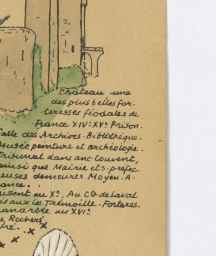 Château une
des plus belles for
teresses féodales de
France XIV-XVe Prison.
alle des Archives. Bibliothèque.
Musée peinture et archéologie.
Tribunal dans anc. couvent,
ainsi que Mairie et s. préfec
euses demeures Moyen. A
ance.
usent au Xe. Au Cte de Laval
aux la Trémoille. Forteres.
au XVIe
Robert